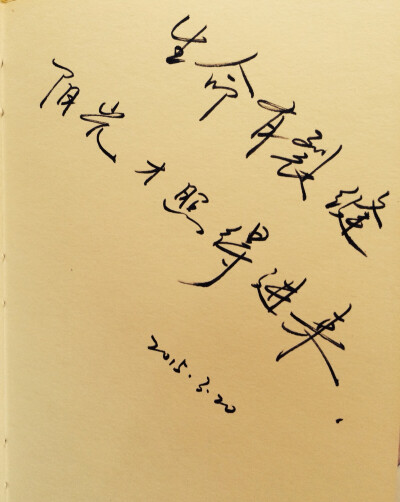 生命有裂缝
阳光才照得进来.
2015.3.20